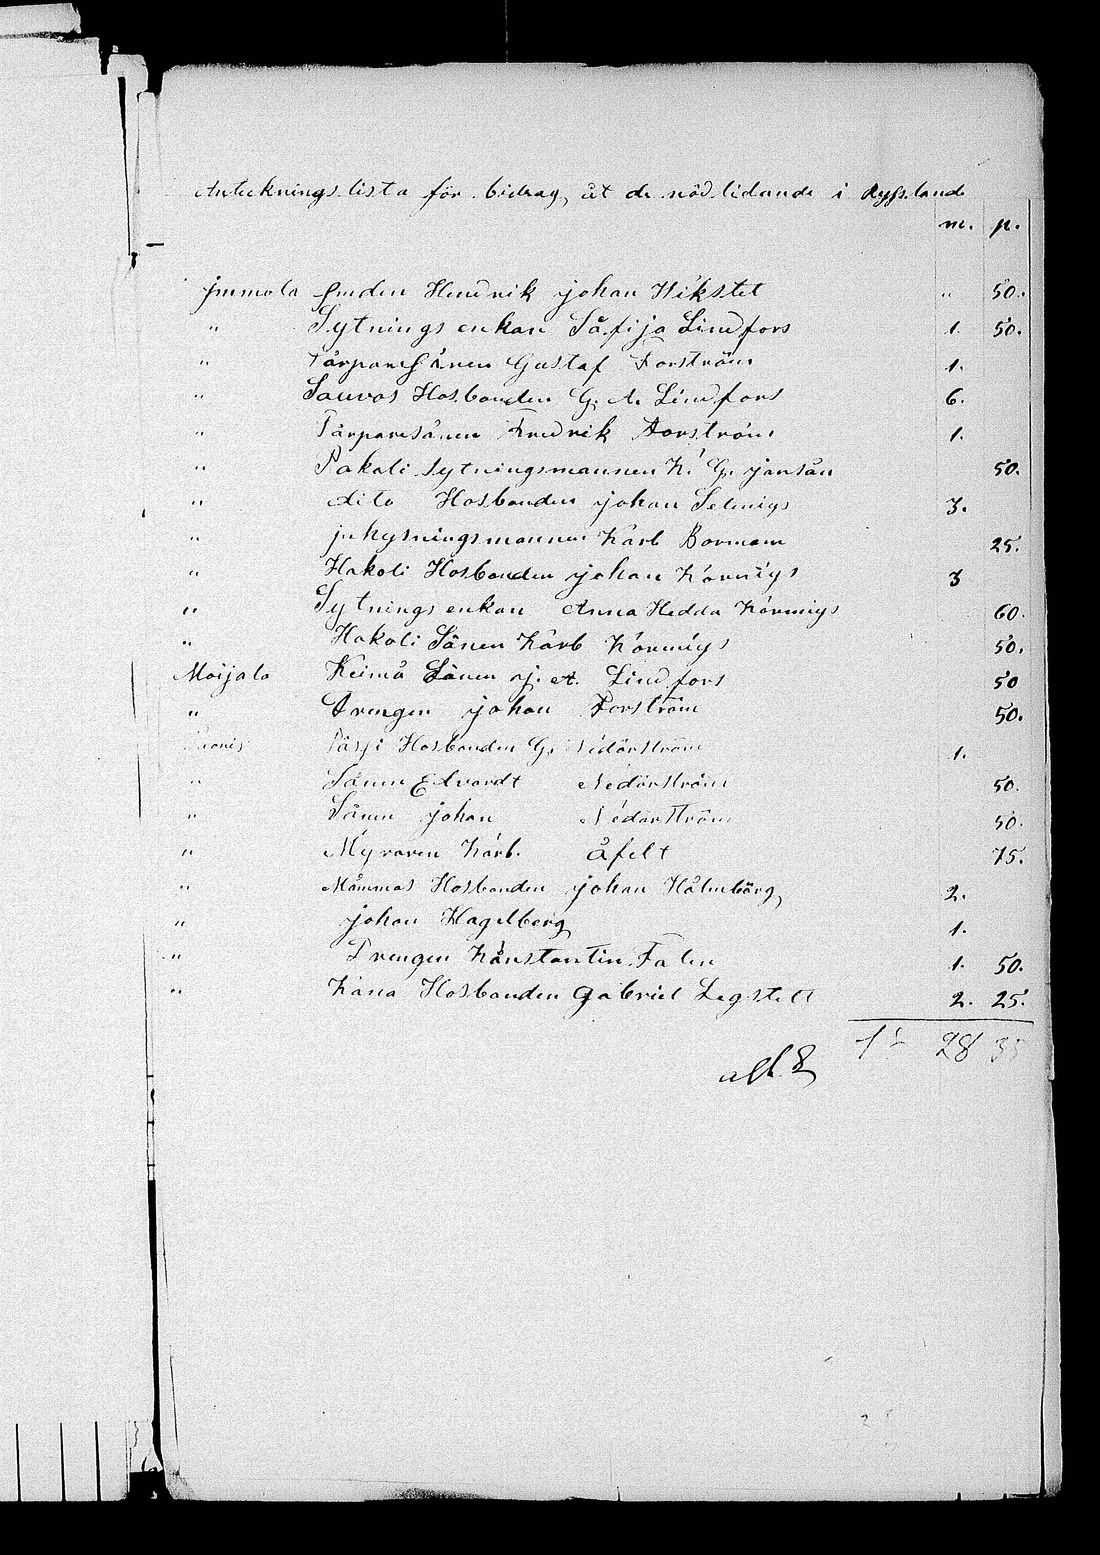 Anteknings lista för bidrag åt de nöd lidande i Ryss.land
m. p.
jmmola Smeden Hendrik johan Wikstet " 50.
" Sytnings enkan Såfija Lindfors 1. 50.
" Tårpare Sånen Gustaf Forström 1.
" Sauvos Hosbonden G. A. Lindfors 6.
" Tårparesånen Fredrik Forström 1.
" Pakali Sytningsmannen K. G. jansån 50.
" dito Hosbonden johan Selenius 3.
" jnhysningsmannen Karl Borman 25.
" Hakoli Hosbonden johan Körniys 3
" Sytnings enkan Anna Hedda Körniys 60.
" Hakoli Sånen Karl Körniys 50.
Maijala Keimå Sånen j. A. Lindfors 50
" Drengen johan Forström 50.
Påsji Hosbonden G. Nedårström 1.
" Sånen Edvardt Nedårström 50.
" Sånen johan Nedårström 50.
" Myraren Karl. åfelt 75.
" Måmmas Hosbonden johan Hålmbårg 2.
" johan Hagelberg 1.
" Drengen Kånstantin Falin 1. 50.
" Kana Hosbonden Gabriel Legstett 2. 25.
28 35